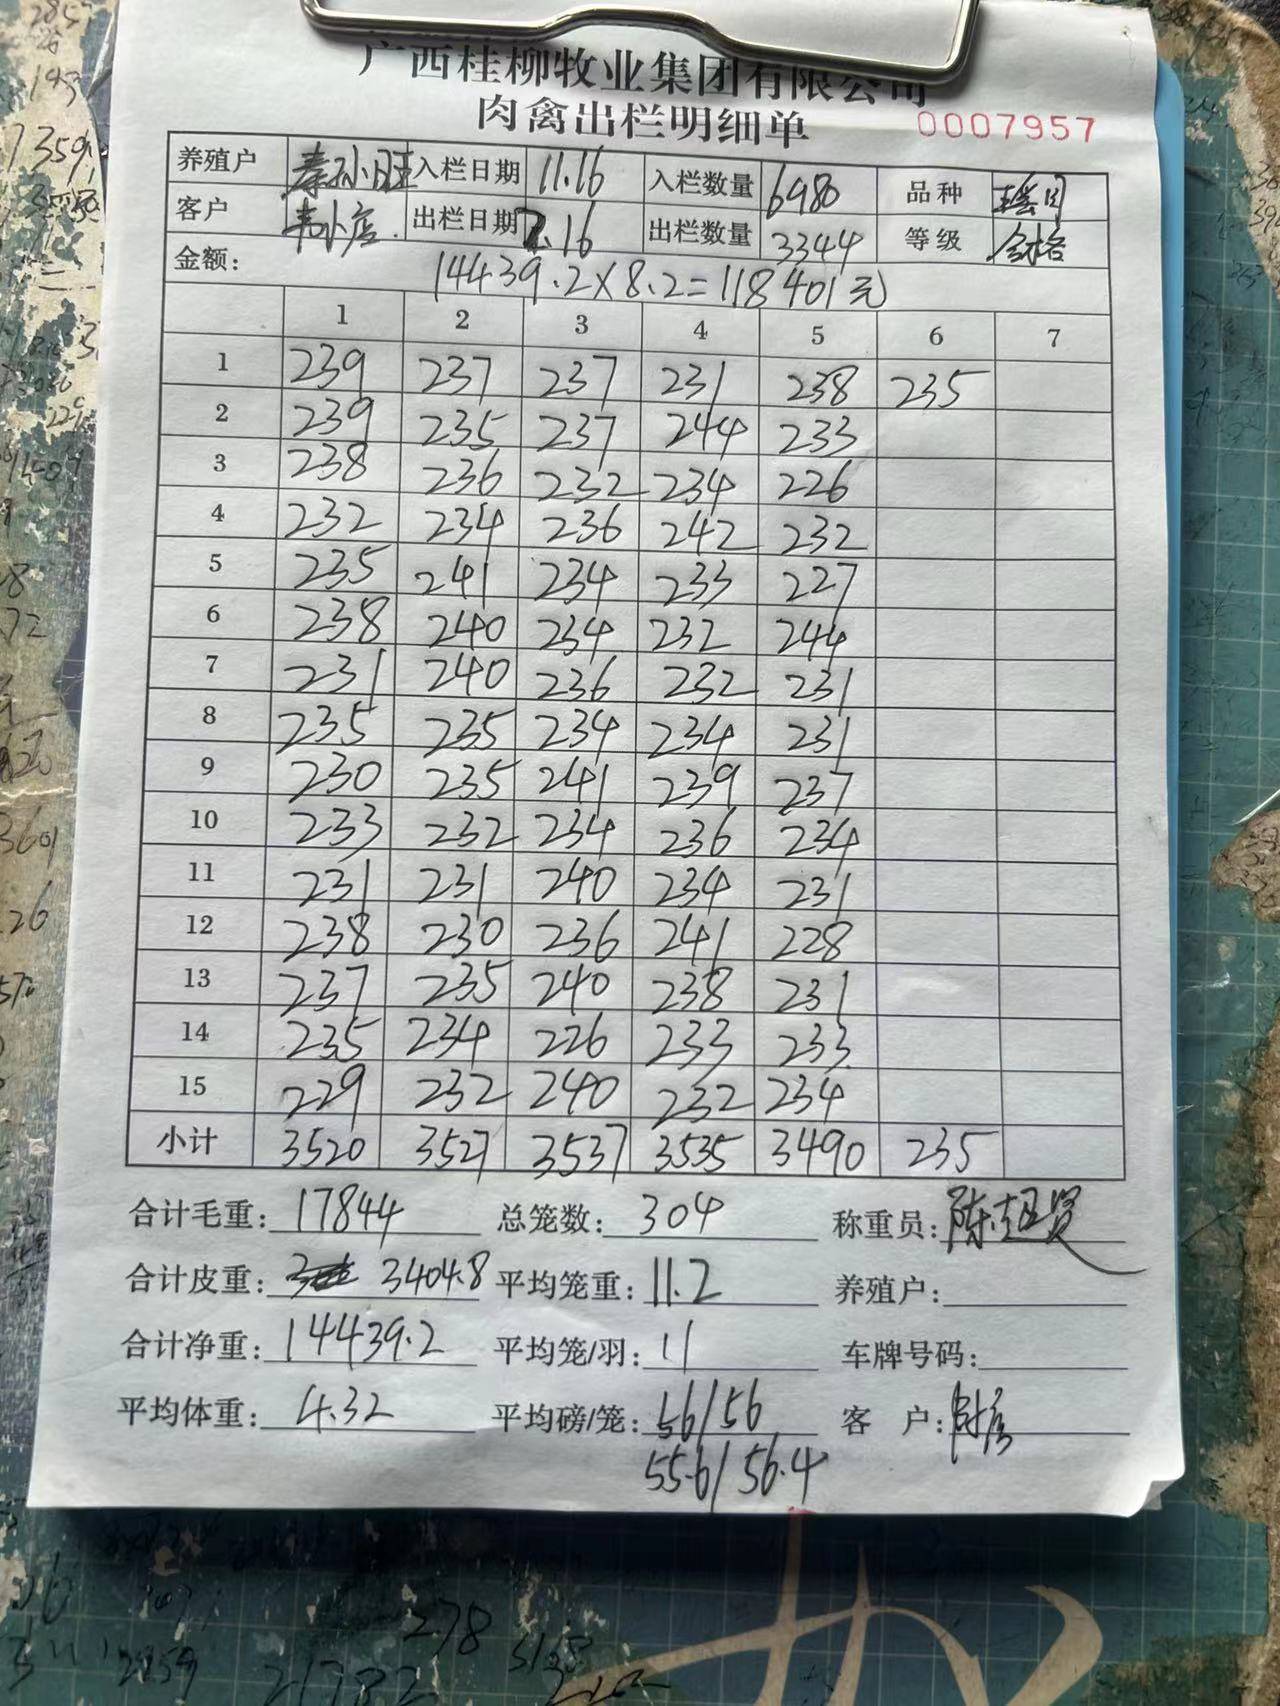 广西桂柳牧业集团有限公司
肉禽出栏明细单 0007957
养殖户 秦孙旺 入栏日期 11.16 入栏数量 6980 品种
客户 出栏日期 2.16 出栏数量 3344 等级 合格
金额: 14439.2×8.2=118401元
1 2 3 4 5 6 7
1 239 237 237 231 238 235
2 239 235 237 244 233
3 238 236 232 234 226
4 232 234 236 242 232
5 235 241 234 233 227
6 238 240 234 232 244
7 231 240 236 232 231
8 235 235 234 234 231
9 230 235 241 239 237
10 233 232 234 236 234
11 231 231 240 234 231
12 238 230 236 241 228
13 237 235 240 238 231
14 235 234 226 233 233
15 229 232 240 232 234
小计 3520 3527 3537 3535 3490 235
合计毛重: 17844 总笼数: 304 称重员: 陈超贤
合计皮重: 3404.8 平均笼重: 11.2 养殖户:
合计净重: 14439.2 平均笼/羽: 11 车牌号码:
平均体重: 4.32 平均磅/笼: 56/56 客 户:
55.6/56.4